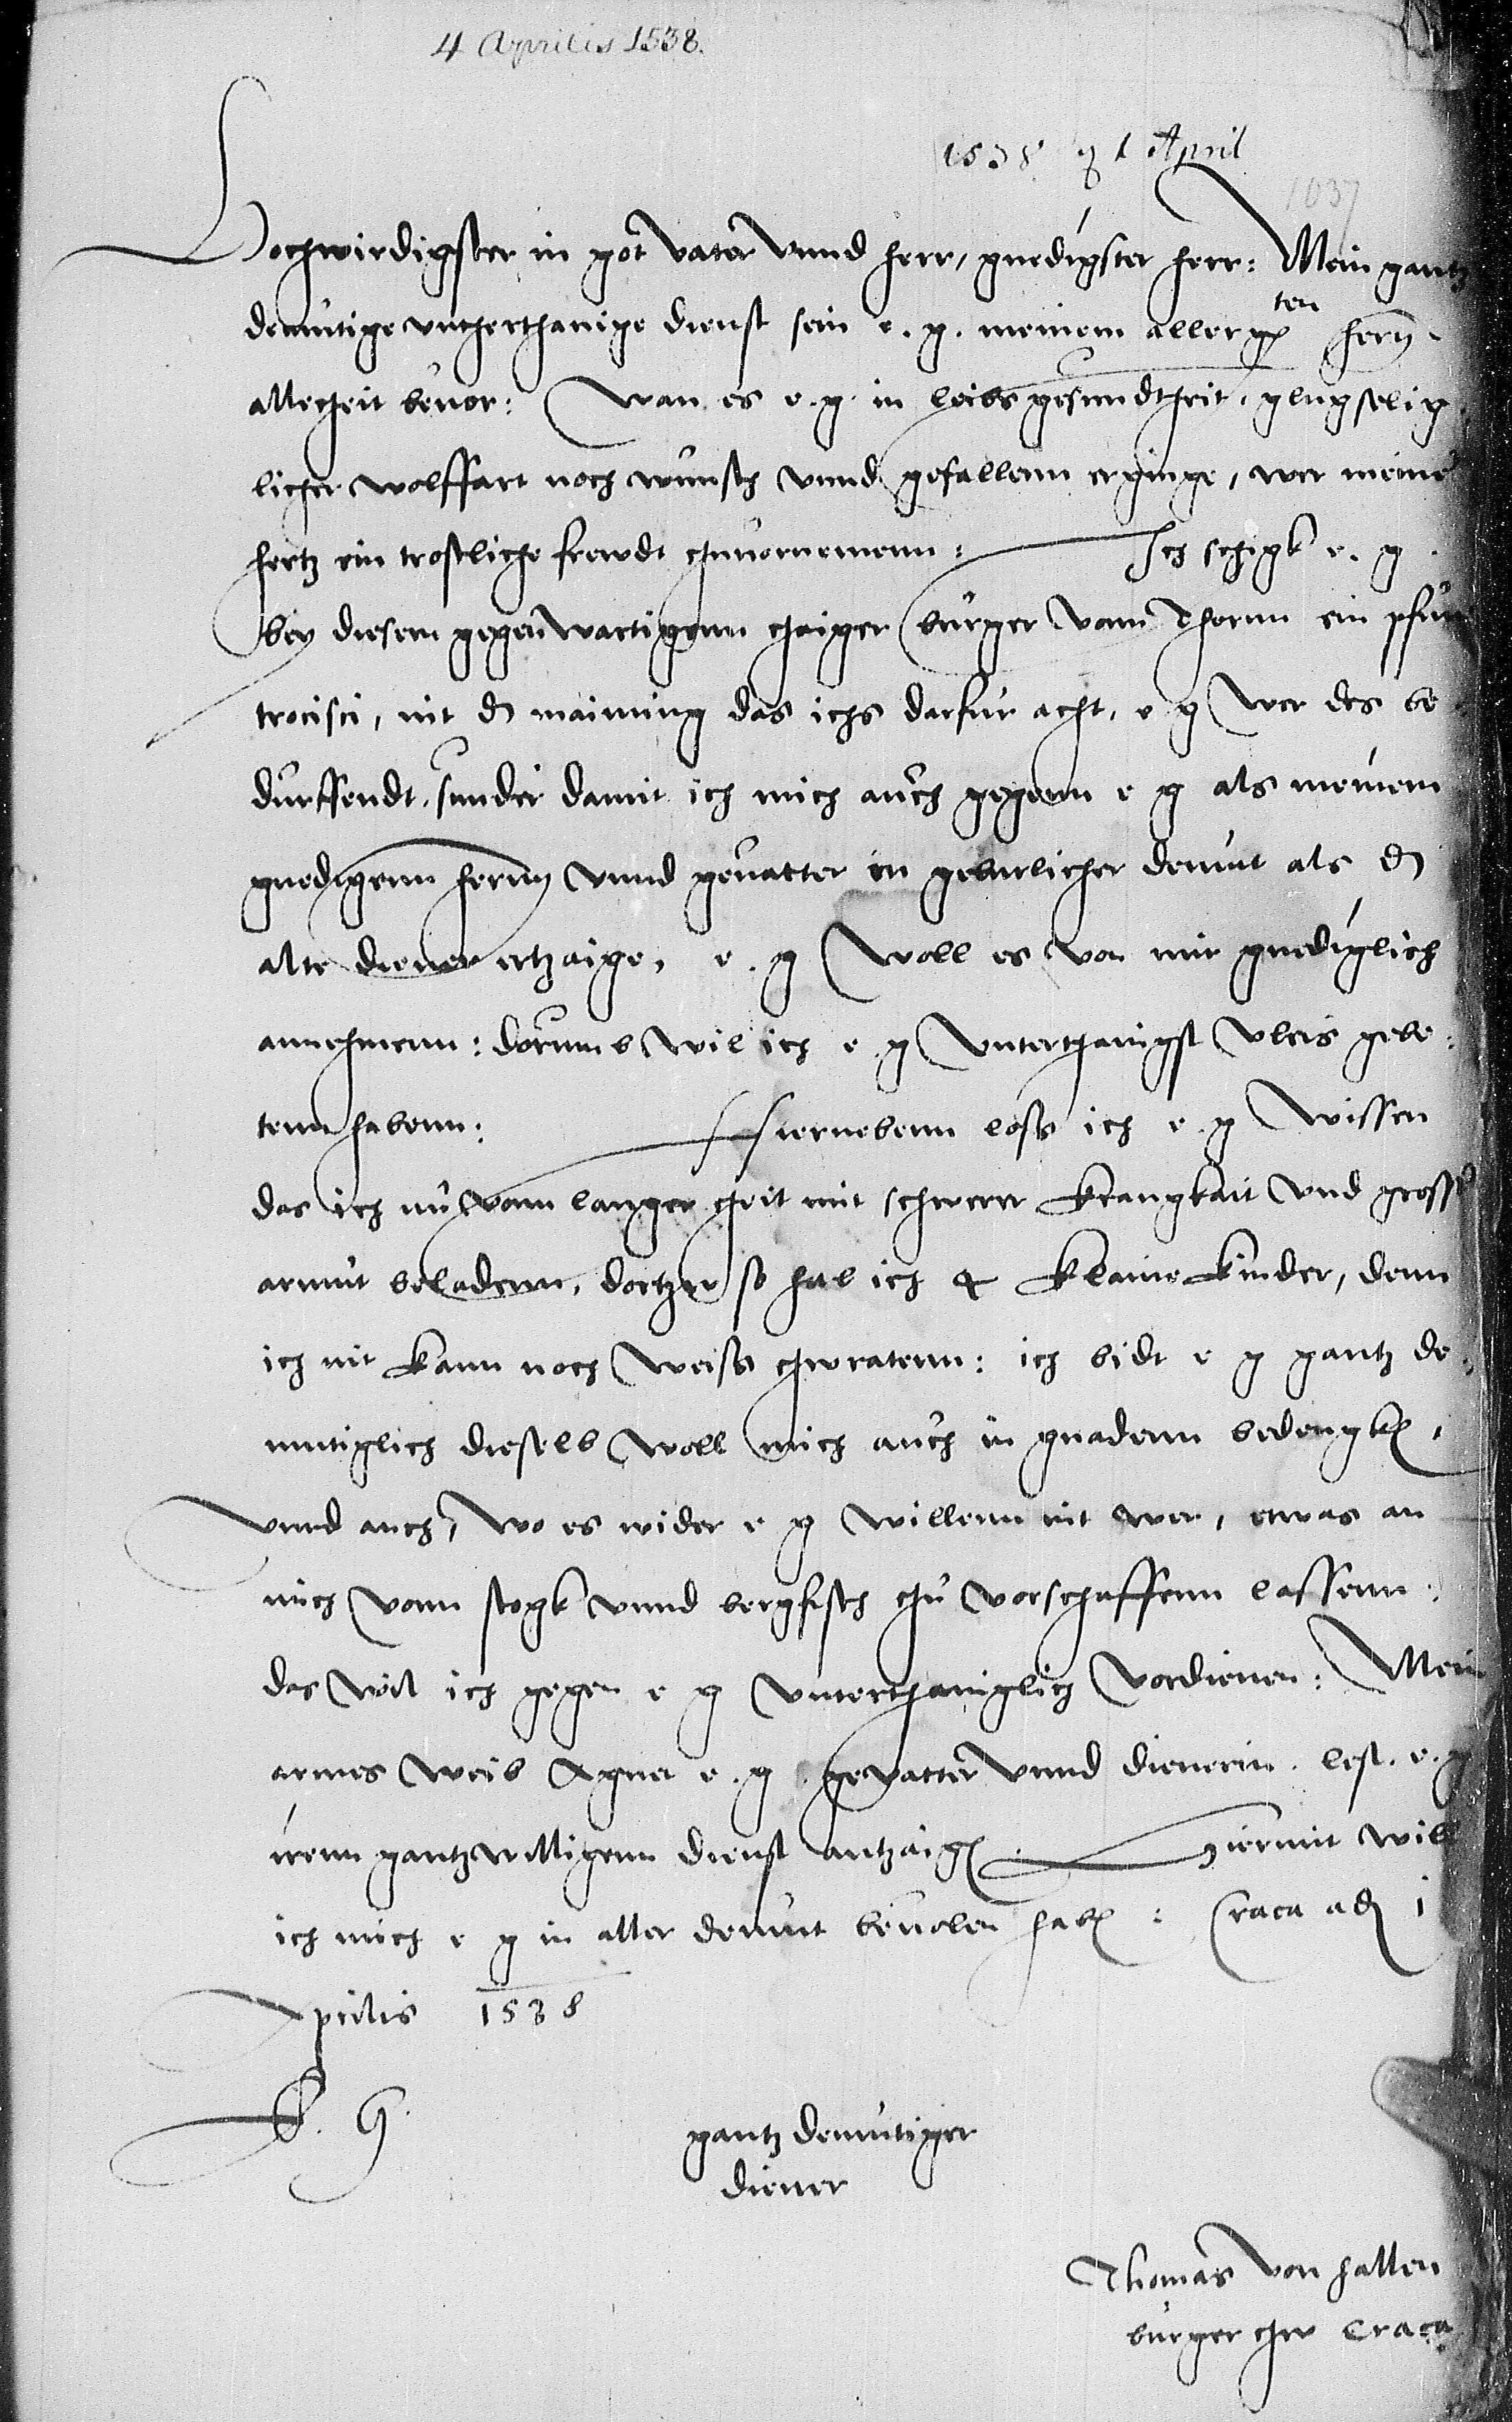 4 Aprilis 1538.
1538 1 April
1037
Hochwirdigster in got vater vnnd herr, gnedigster herr: Mein gantz
demutige vntherthanige dienst sein e. g. meinem allergten hern
alletzeit beuor: Wan es e. g. in leibs gesundtheit, glugselig
licher wolffart noch wunsch vnnd gefallenn erginge, wer meine
hertz ein trostliche frewdt tzuuornemenn: Ich schigk e. g.
bey diesem gegenwartigenn tzaiger burger vonn Thornn ein pfun
trocisci, nit d mainung das ichs darfur acht, e g wer des be
durffendt, sunder damit ich mich auch gegenn e g als meinem
gnedigenn hernn vnnd geuatter in geburlicher demut als d
alte diener ertzaige, e. g woll es von mir gnediglich
annehmenn: dorumb wil ich e g vnterthanigst vleis gebe:
tenn habenn: Hiernebenn loss ich e. g wissen
das ich nu vonn langer tzeit mit schwerer krangkait vnd grosser
armut beladenn, dortzw so hab ich 4 klaine kinder, denn
ich nit kann noch weiss tzwratenn: ich bidt e g gantz de:
mutiglich dieselb woll mich auch in gnadenn bedengk,
vnnd auch, wo es wider e g willenn nit wer, etwas an
mich vonn stogk vnnd bergfisch tzu vorschaffenn lassenn:
das wil ich gegen e g vnterthaniglich vordienen: Mein
armes weib Agnet e. g. gevatter vnnd dienerin. lest. e. g
irenn gantzwilligenn dienst antzaig. Hiermit will
ich mich e g in aller demut beuolen hab: Craca ad 1
Aprilis 1538
E. G.
gantz demutiger
diener
Thomas von hallen
burger tzw Craca